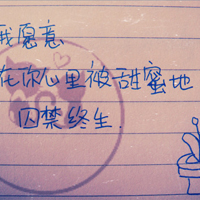 我愿意
在你心里被甜蜜地
囚禁终生.